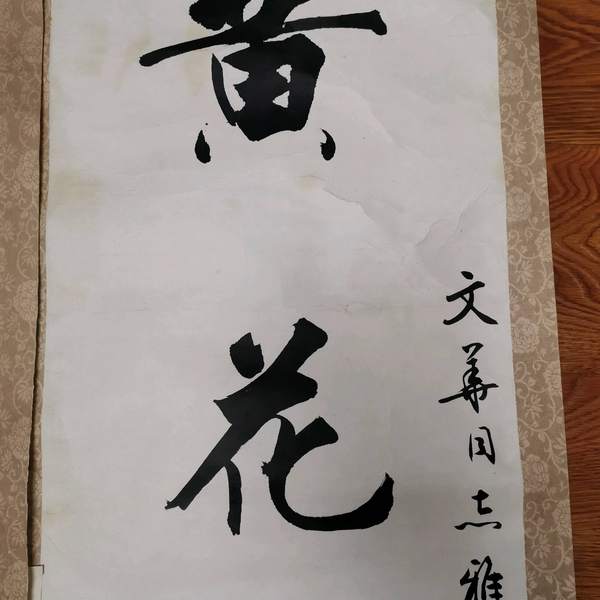 文華同志雅
黄花